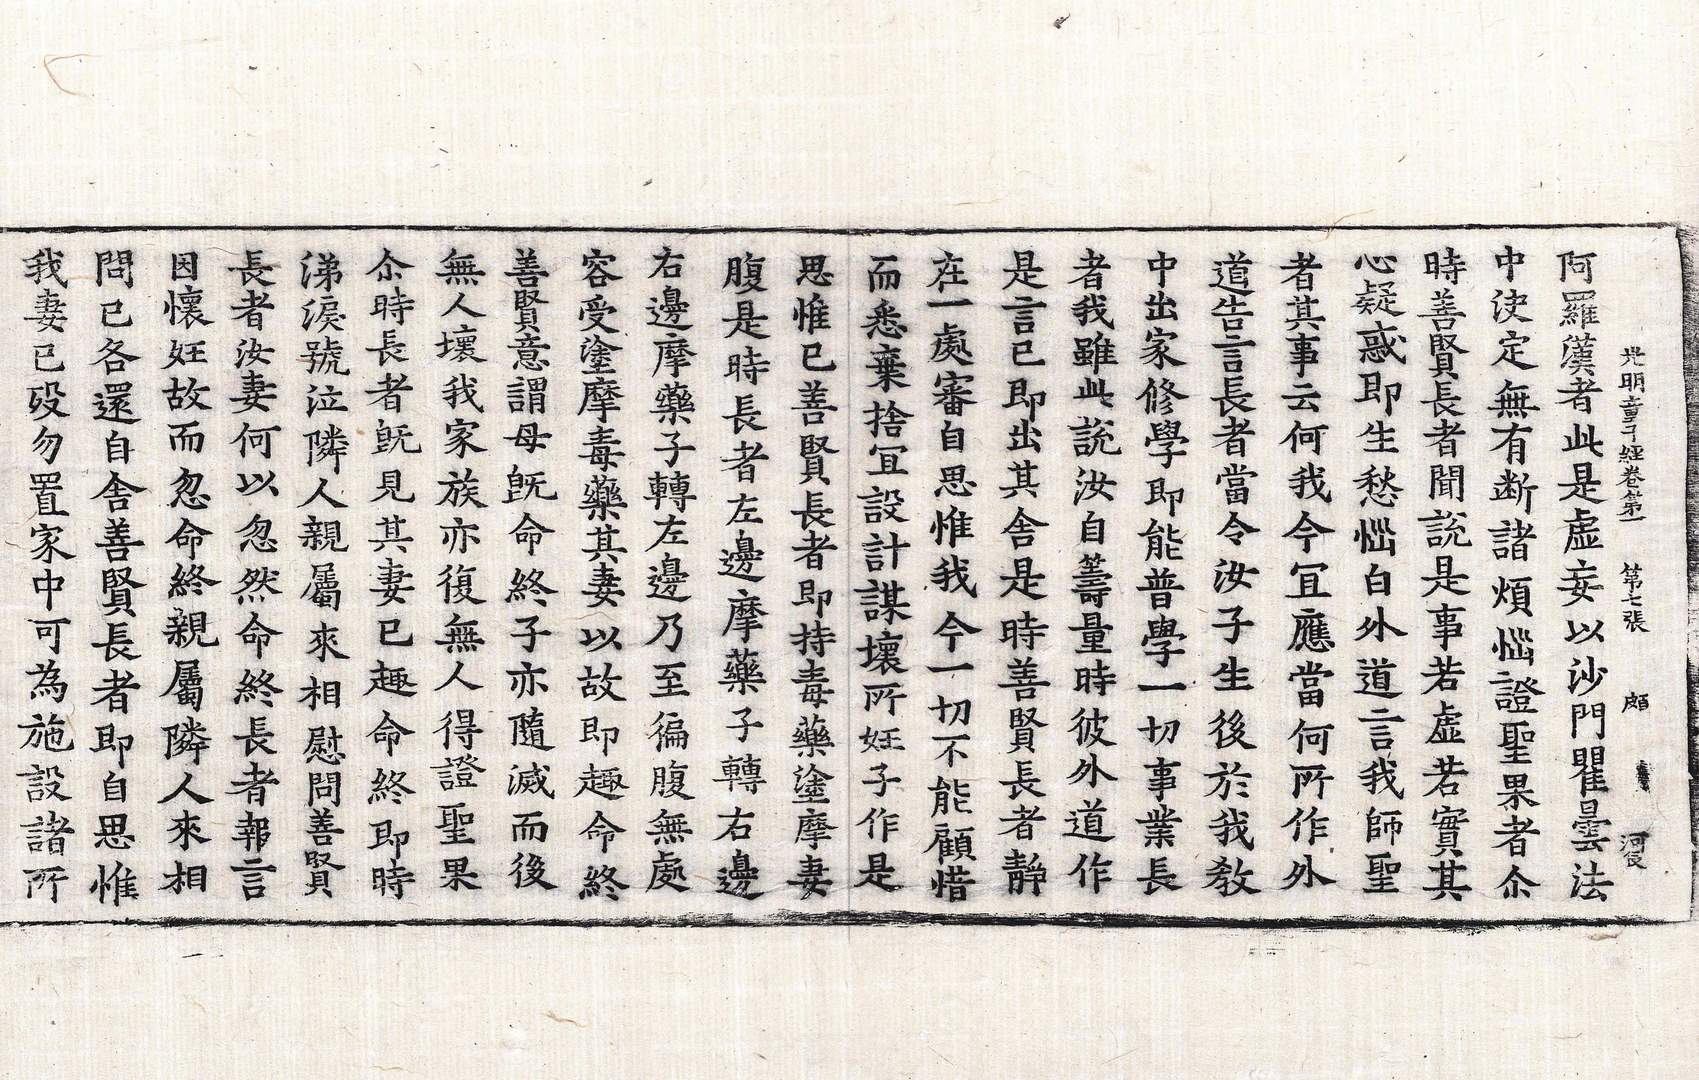 光明童子經卷第一　第七張　頗
阿羅漢者此是虛妄以沙門瞿曇法
中决定無有断諸煩惱證聖果者尒
時善賢長者聞說是事若虛若實其
心疑惑即生愁惱白外道言我師聖
者其事云何我今冝應當何所作外
道告言長者當令汝子生後於我教
中出家修學即能普學一切事業長
者我雖此說汝自籌量時彼外道作
是言已即出其舍是時善賢長者靜
在一處審自思惟我今一切不能顧惜
而悉棄捨冝設計謀壞所妊子作是
思惟已善賢長者即持毒藥塗摩妻
腹是時長者左邊摩藥子轉右邊
右邊摩藥子轉左邊乃至徧腹無處
容受塗摩毒藥其妻以故即趣命終
善賢意謂母旣命終子亦隨滅而後
無人壞我家族亦復無人得證聖果
尒時長者旣見其妻已趣命終即時
涕淚號泣隣人親屬來相慰問善賢
長者汝妻何以忽然命終長者報言
因懷妊故而忽命終親屬隣人來相
問已各還自舍善賢長者即自思惟
我妻已歿勿置家中可為施設諸所